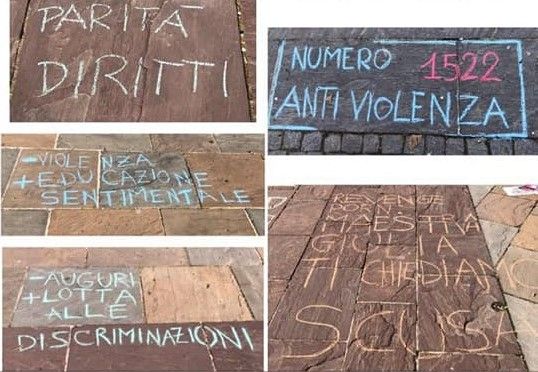 PARITÀ
DIRITTI
NUMERO 1522
ANTI VIOLENZA
-VIOLENZA
+EDUCAZIONE
SENTIMENTALE
-AUGURI
+LOTTA
ALLE
DISCRIMINAZIONI
REVENGE
PORN
MAESTRA
GIULIA
TI CHIEDIAMO
SCUSA